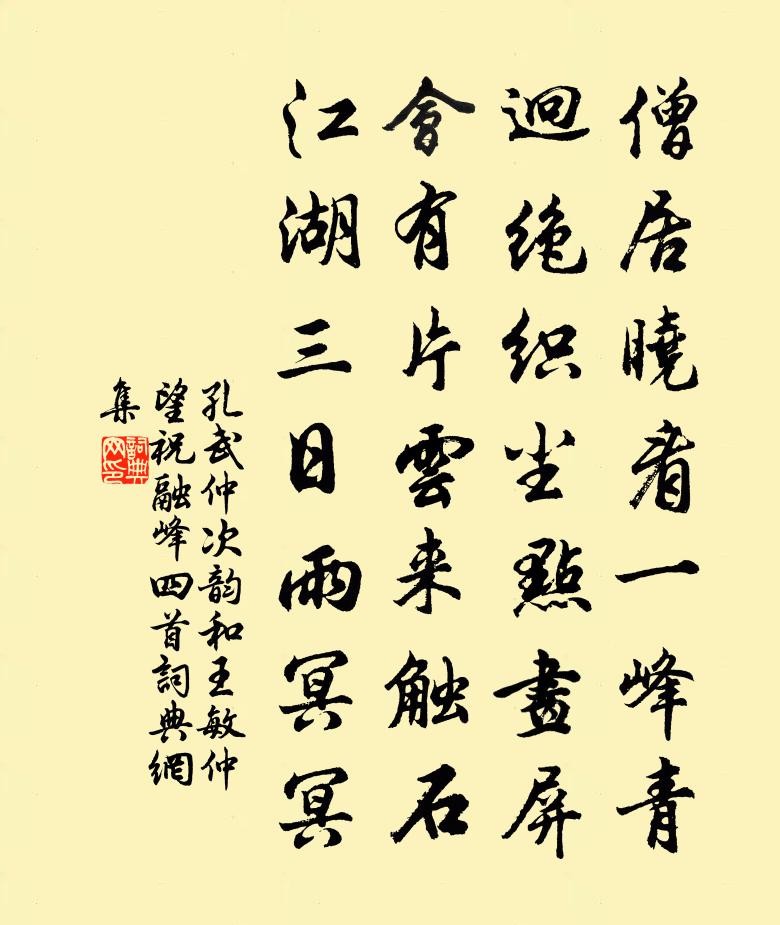 僧居曉看一峰青
迥絶织尘點畫屏
會有片雲来触石
江湖三日雨冥冥
孔武仲次韵和王敏仲
望祝融峰四首詞典網
集
詞典网印